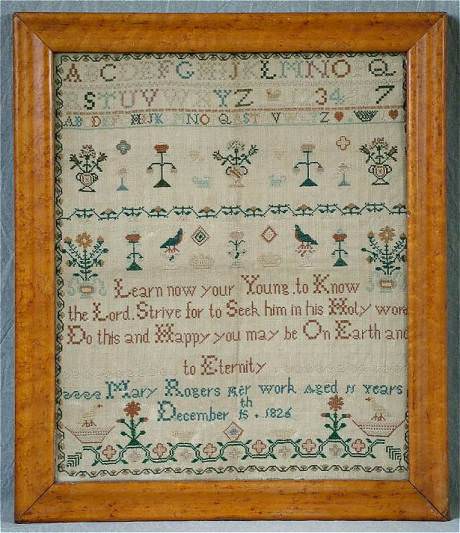 A B C D E F G H I J K L M N O Q
S T U V Y Z 3 4 7
A B D E F H I J K M N O Q A S T V W Z
Learn now your Young to Know
the Lord. Strive for to Seek him in his Holy word
Do this and Happy you may be On Earth and
to Eternity
Mary Rogers her work aged 11 years
December 15th . 1826